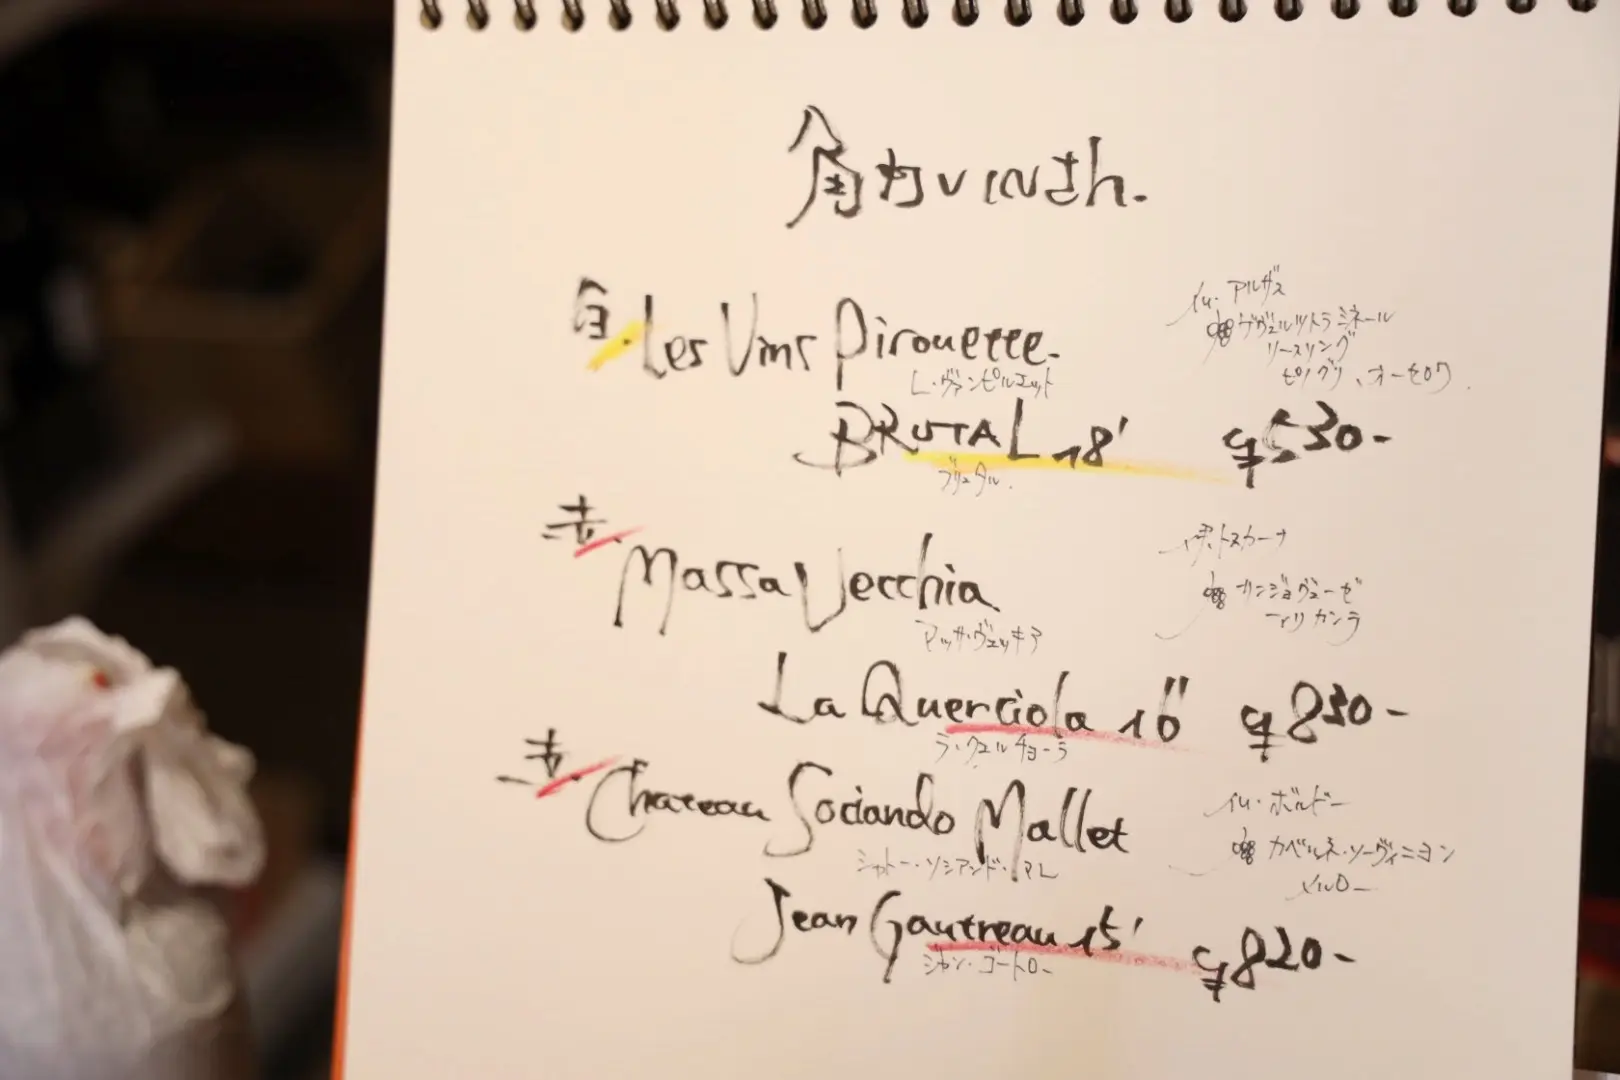 角打vinさん.
白.Les Vins Pirouette.
レ・ヴァンピルエット
仏.アルザス
ゲヴェルツトラミネール
リースリング
ピノグリ、オーセロワ.
BRUTAL 18' 530-
ブリュタル.
赤.Massa Vecchia
マッサ・ヴェッキア
伊.トスカーナ
サンジョヴェーゼ
アリカンテ
La Querciola 16" 830-
ラ・クエルチョーラ
赤.Chateau Sociando Mallet
シャトー・ソシアンド・マレ
仏.ボルドー
カベルネ・ソーヴィニヨン
メルロー
Jean Gautreau 15' 820-
ジャン・ゴートロー